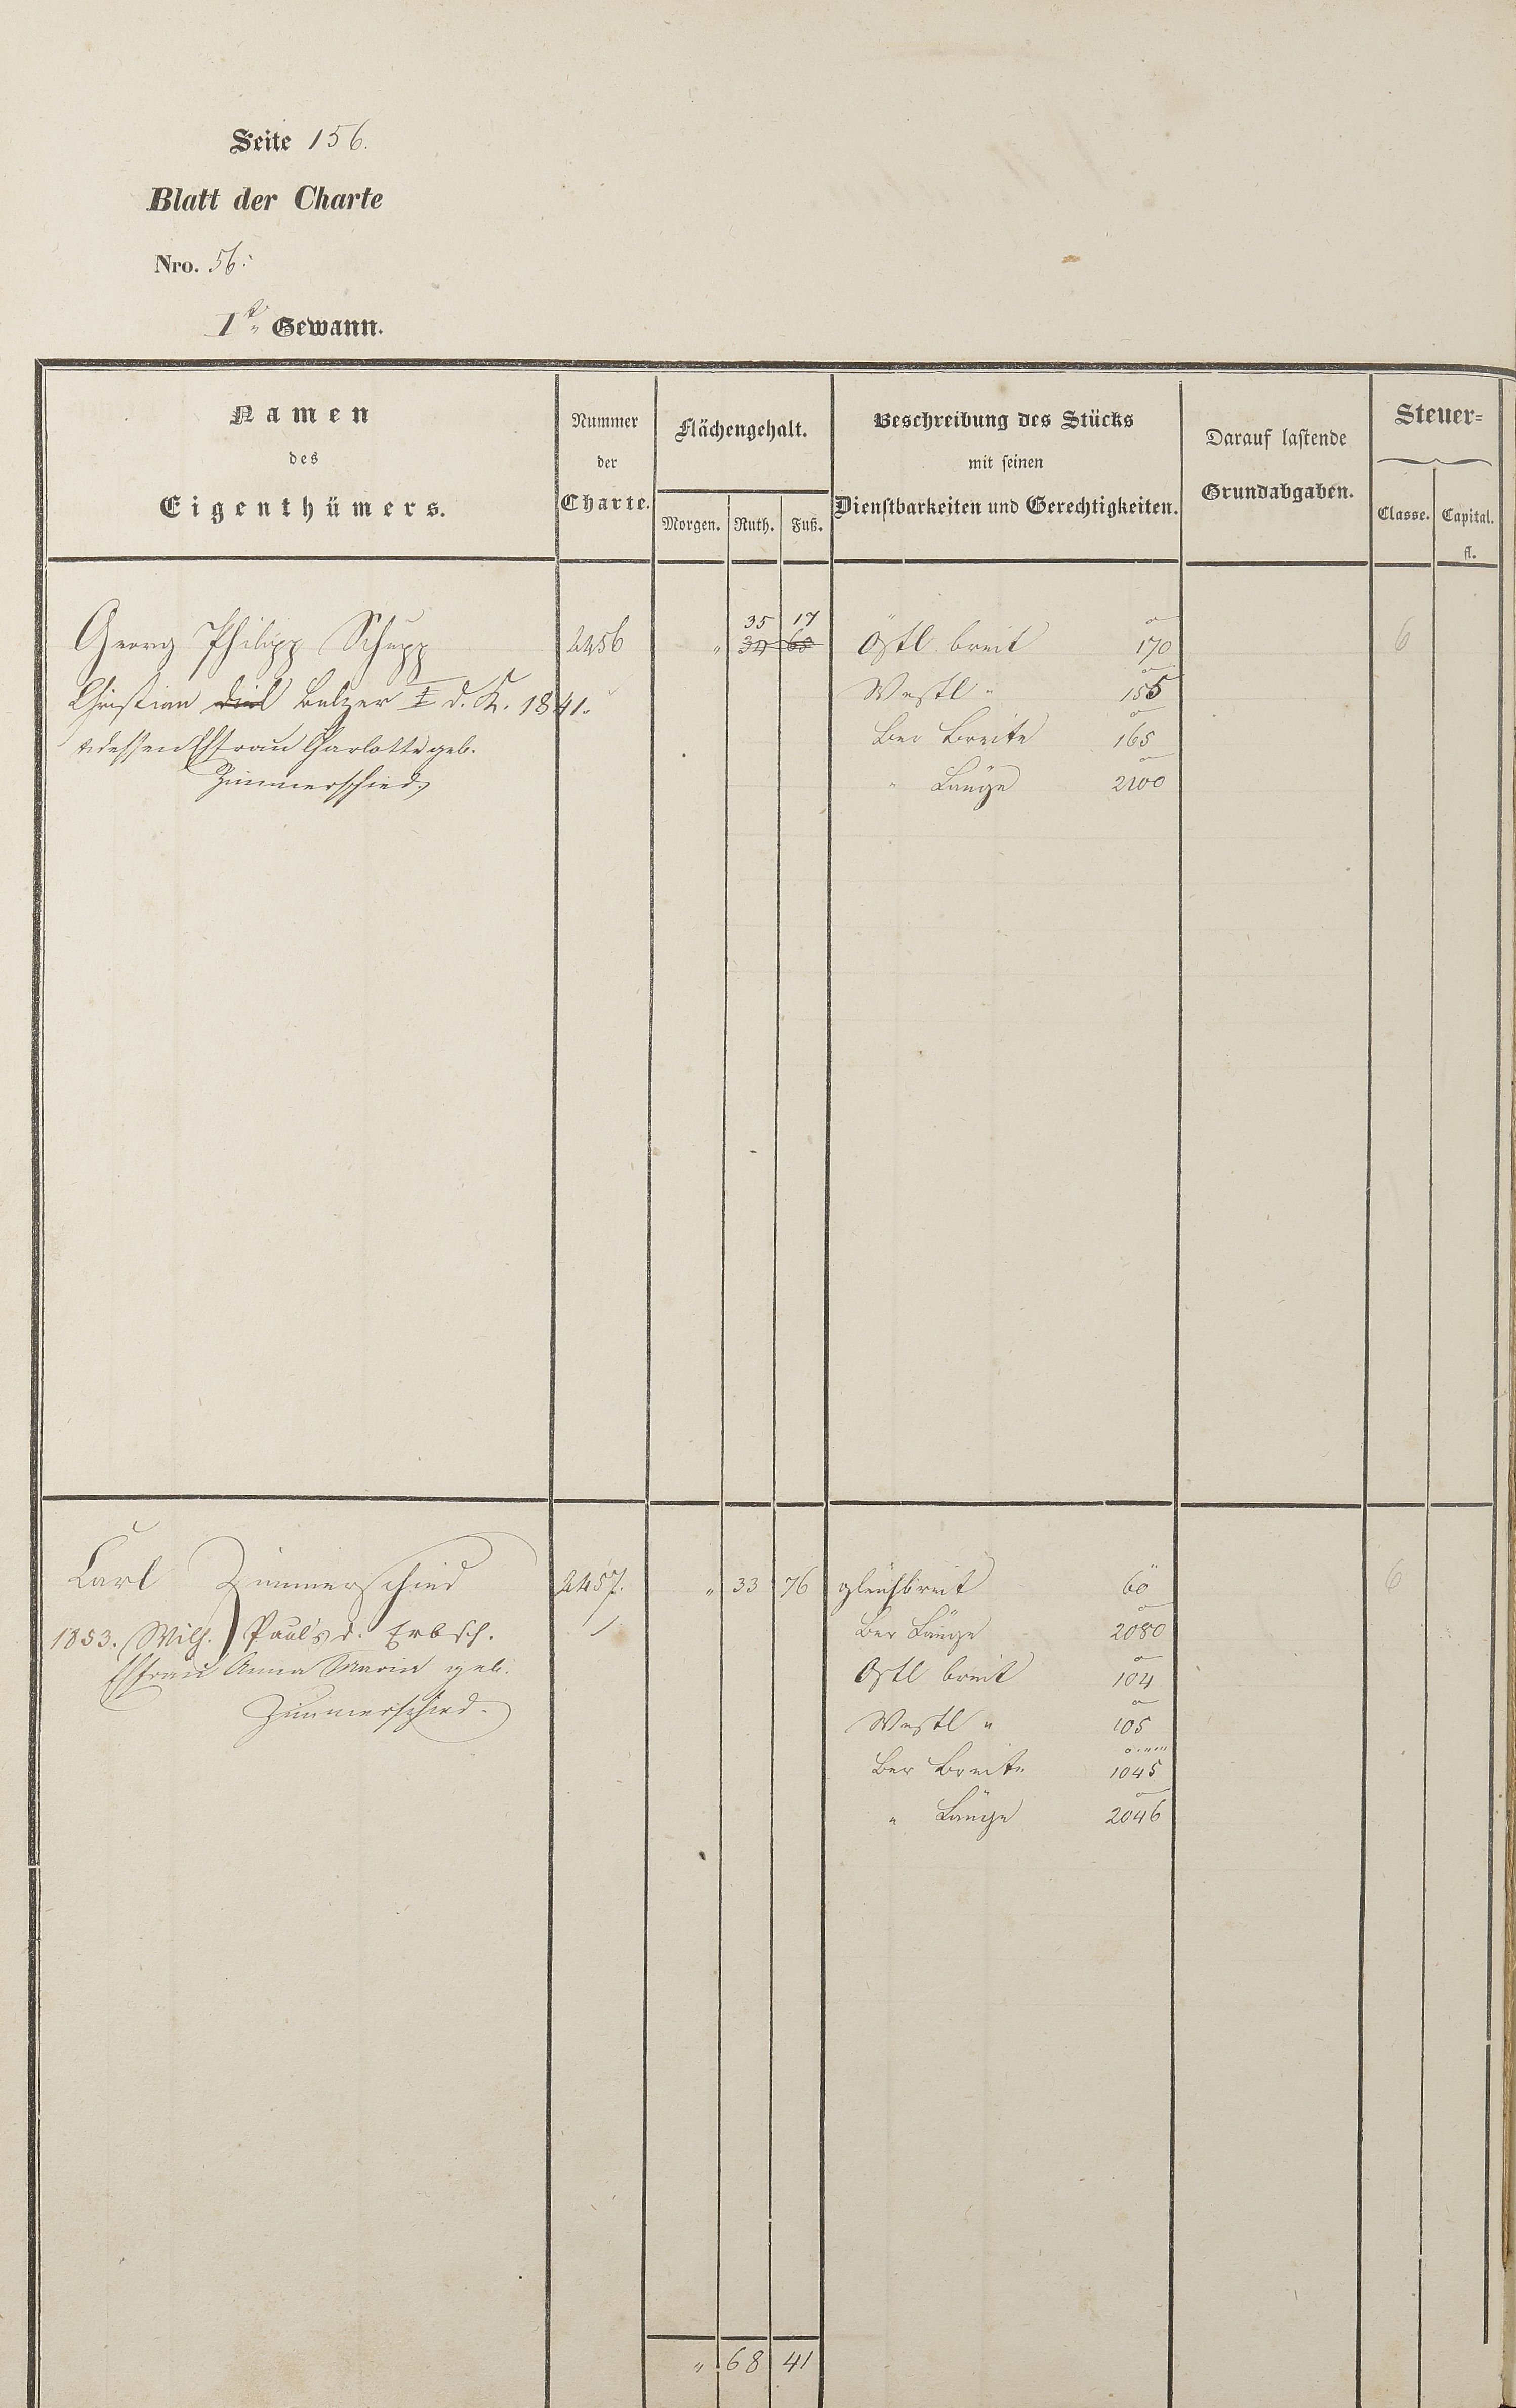 Seite 156.
Blatt der Charte
Nro. 56.
I.te Gewann.
Namen
des
Eigenthümers.
Nummer
der
Charte.
Flächengehalt.
Morgen. Ruth. Fuß.
Beschreibung des Stücks
mit seinen
Dienstbarkeiten und Gerechtigkeiten.
Darauf lastende
Grundabgaben.
Steuer-
Classe. Capital.
fl.
35 17
Georg Philipp Schupp 2456 " 34 68 Östl. breit 170 6
Christian Diel Balzer I d. K. 1841. Westl " 155
u dessen Ehfrau Charlotte geb. Ber Breite 165
Zimmerschied " Länge 2100
Carl Zimmerschied 2457. " 33 76 gleichbreit 60 6
1853. Wilh. Paul's d. Erbsch. Ber Länge 2080
Ehfrau Anna Maria geb. Östl breit 104
Zimmerschied. Westl " 105
Ber Breite 1045
" Länge 2046
" 68 41